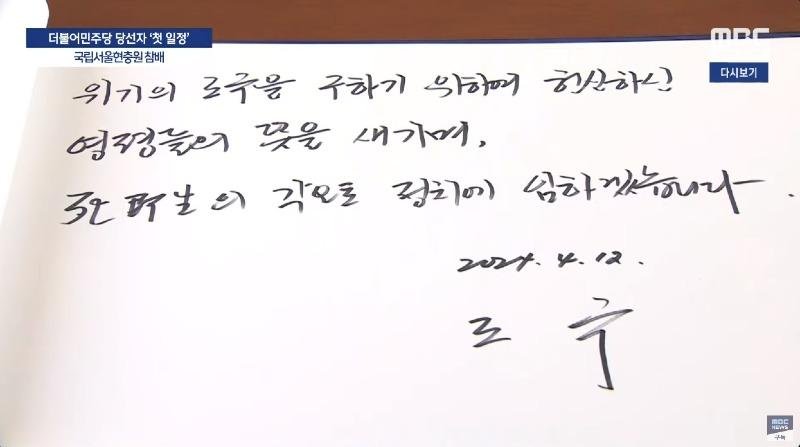 더불어민주당 당선자 '첫 일정'
국립서울현충원 참배
MBC
다시보기
위기의 조국을 구하기 위하여 헌신하신
영령들의 뜻을 새기며,
각오로 정치에 임하겠습니다.
2024. 4. 12.
조 국
MBC
NEWS
구독